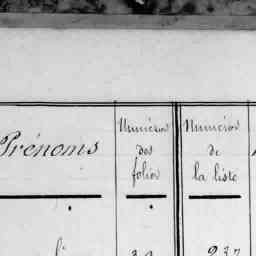 Prénoms
Numéros
des
folios
Numéros
de
la liste
237